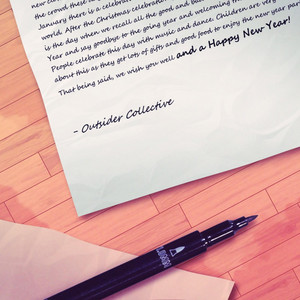 the crowd these
January there is a celebration
world. After the Christmas celebration
is the day when we recall all the good and bad
Year and say goodbye to the going year and welcoming the
People celebrate this day with music and dance. Children are very
about this as they get lots of gifts and good food to enjoy the new year par
That being said, we wish you well and a Happy New Year!
- Outsider Collective